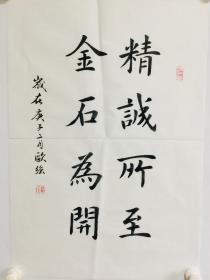 精誠所至
金石為開
歲在庚子二月歐繇